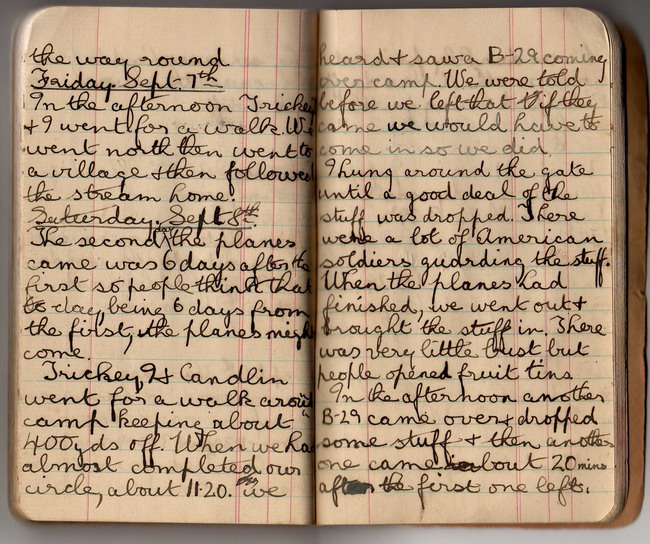 the way round
Friday Sept. 7th
In the afternoon Trickey
& I went for a walk. We
went north then went to
a village & then followed
the stream home.
Saturday, Sept 8th.
The second day the planes
came was 6 days after the
first so people think that
to-day, being 6 days from
the first, the planes might
come.
Trickey, I & Candlin
went for a walk around
camp keeping about
400yds off. When we had
almost completed our
circle, about 11.20. we
heard & saw a B-29 coming
over camp. We were told
before we left that if they
came we would have to
come in so we did.
I hung around the gate
until a good deal of the
stuff was dropped. There
were a lot of American
soldiers guarding the stuff.
When the planes had
finished, we went out &
brought the stuff in. There
was very little bust but
people opened fruit tins
In the afternoon another
B-29 came over & dropped
some stuff & then another
one came about 20 mins.
after the first one left.